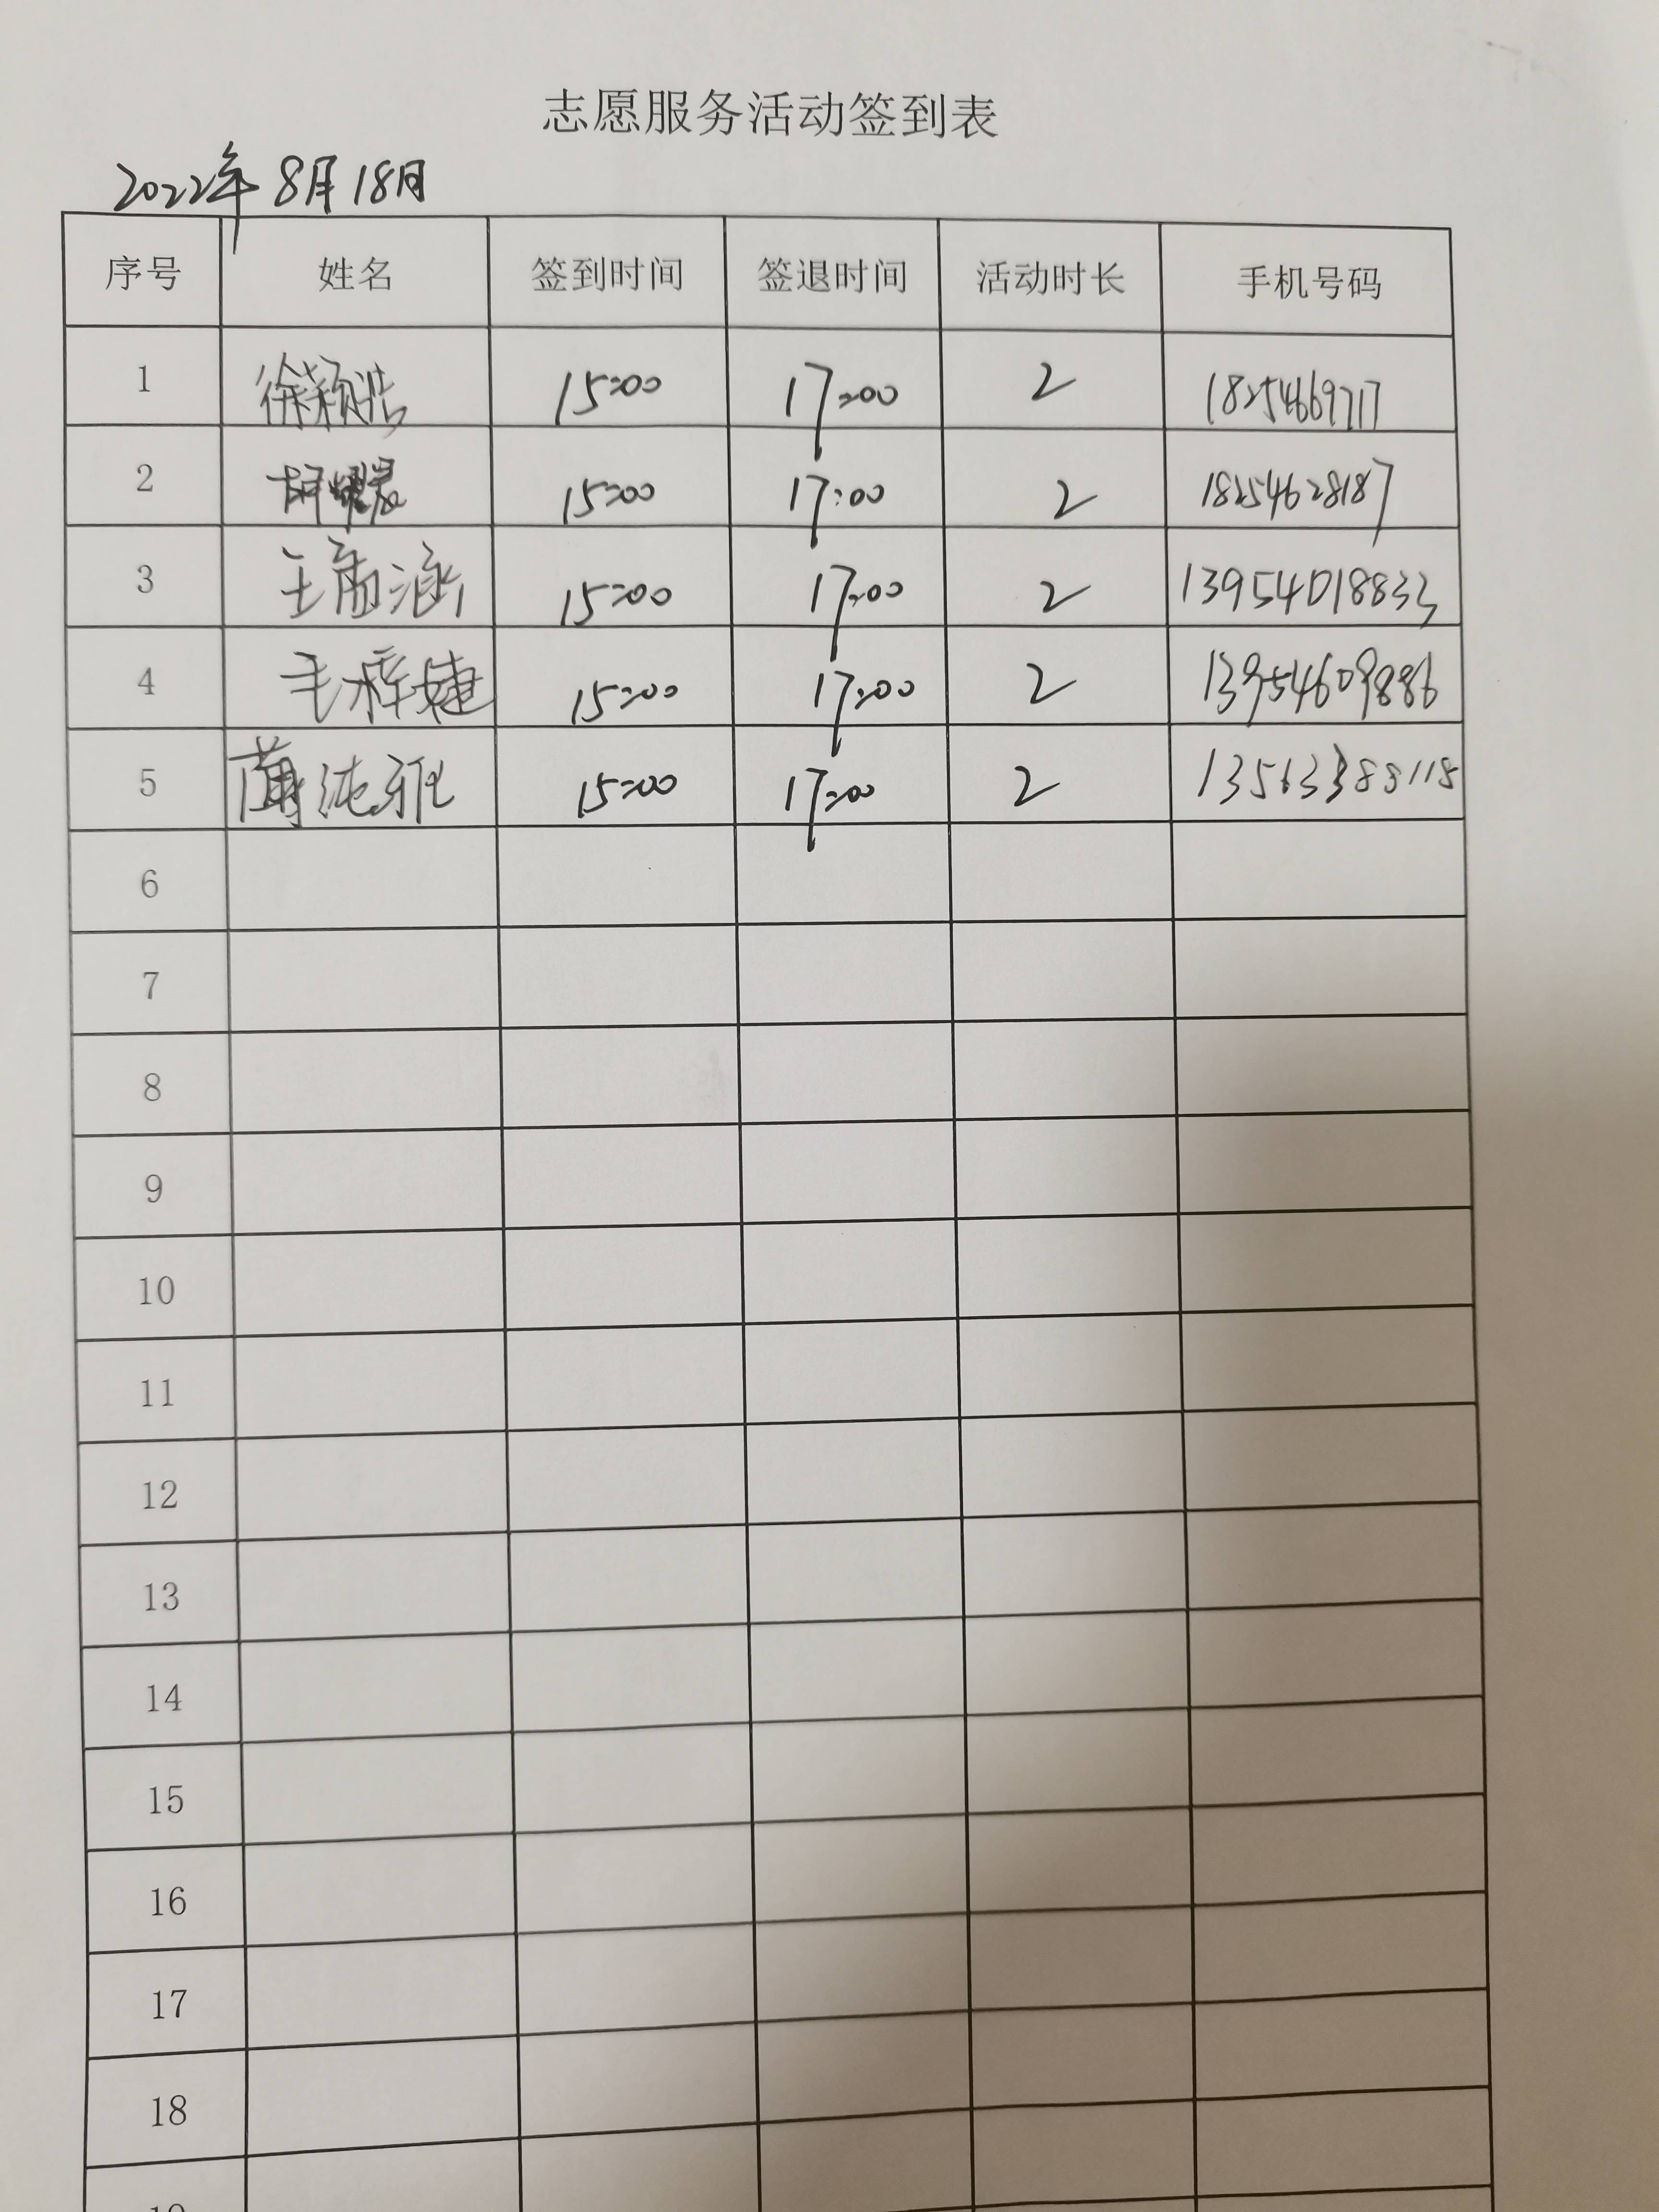 志愿服务活动签到表
2022年8月18日
序号 姓名 签到时间 签退时间 活动时长 手机号码
1 徐颖浩 15:00 17:00 2 18254669717
2 胡耀晨 15:00 17:00 2 18254628187
3 王雨涵 15:00 17:00 2 13954018833
4 毛梓婕 15:00 17:00 2 13954609886
5 蔺纯雅 15:00 17:00 2
6
7
8
9
10
11
12
13
14
15
16
17
18